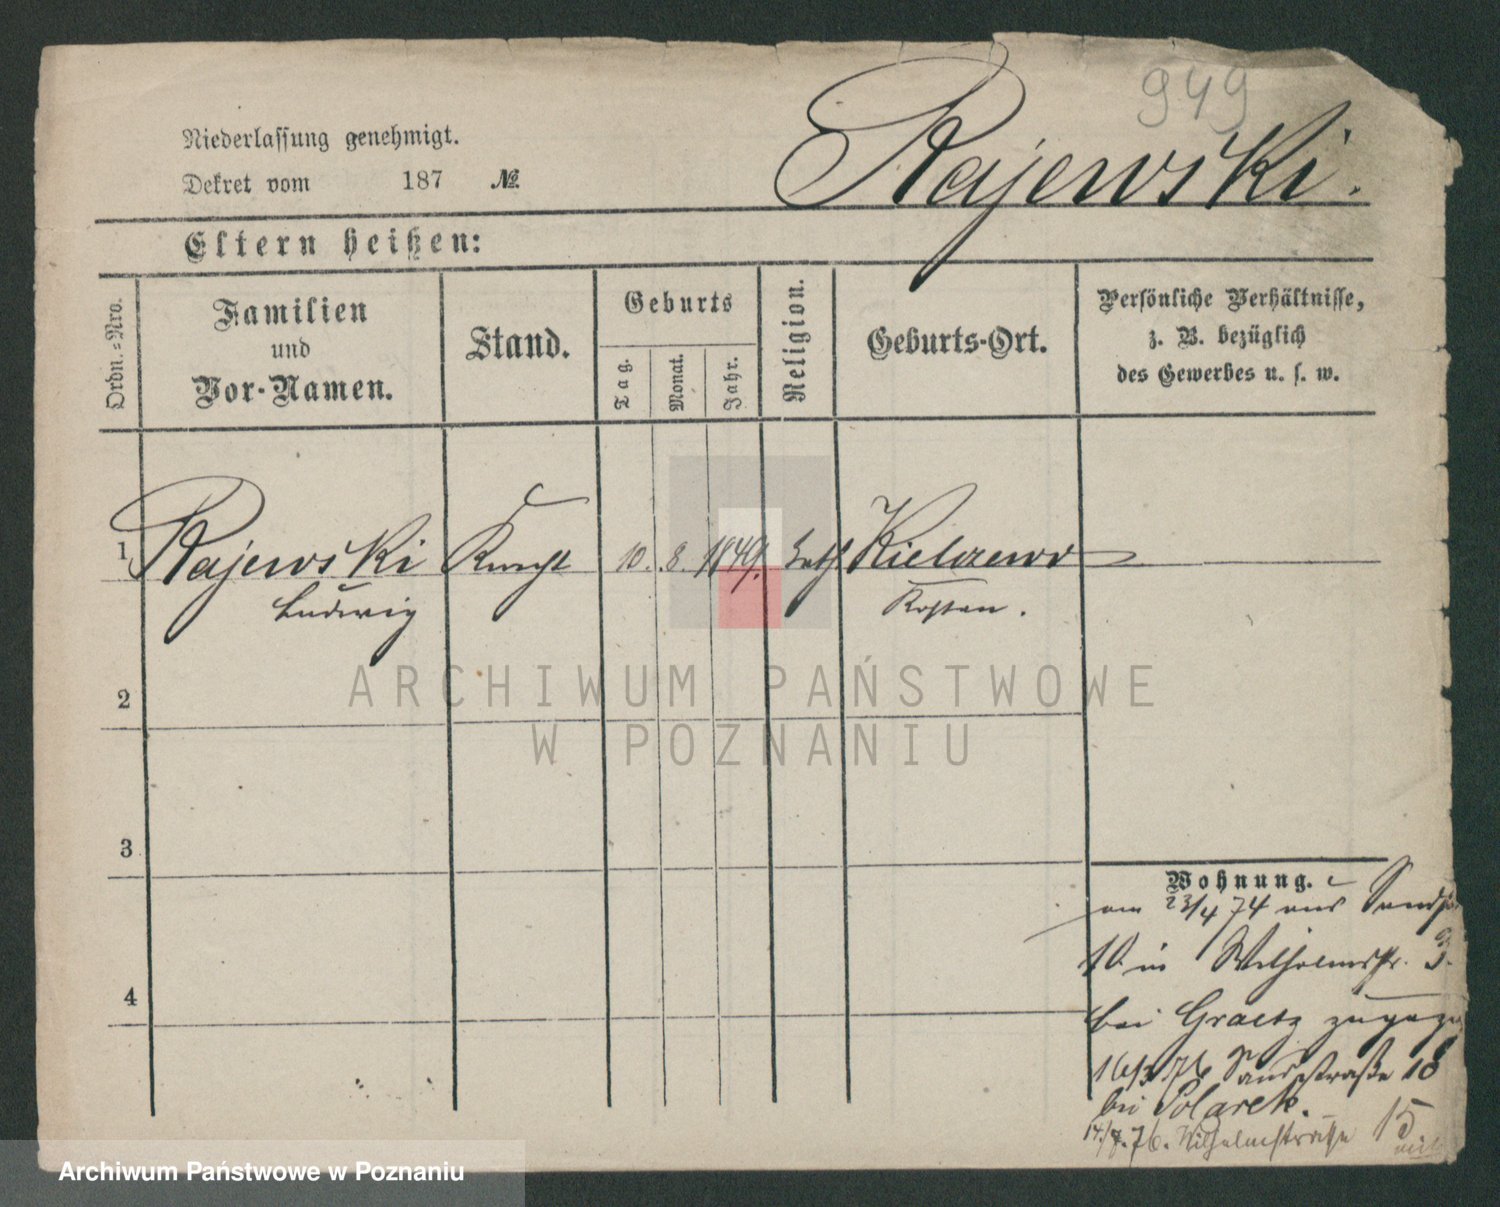 949
Rajewski.
Niederlassung genehmigt.
Dekret vom 187 №
Eltern heißen:
Ordn.-Nro.
Familien
und
Vor-Namen.
Stand.
Geburts
Tag.
Monat.
Jahr.
Religion.
Geburts-Ort.
Persönliche Verhältnisse,
z. B. bezüglich
des Gewerbes u. s. w.
1 Rajewski Knecht 10. 8. 1849. kath Kielczewo
Ludwig Kosten.
2
3
4
Wohnung.
am 23/4 74 aus
10 in Wilhelmstr. 3.
bei Graetz
16/3 76 Sandstraße 10
bei Polarek.
14/8. 76. Wilhelmstraße 15
ARCHIWUM PAŃSTWOWE
W POZNANIU
Archiwum Państwowe w Poznaniu